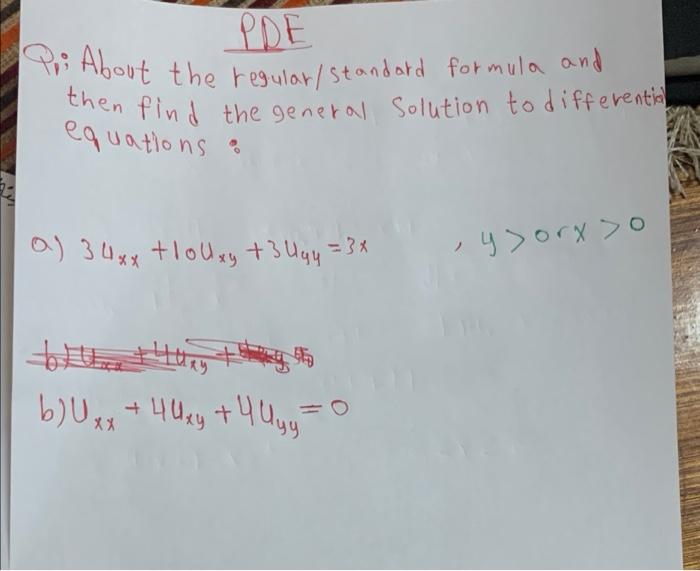 PDE
Q1: About the regular/standard formula and
then find the general solution to differential
equations :
a) 3uxx + 10Uxy + 3Uyy = 3x , y > 0 r x > 0
b) Uxx + 4Uxy +
b) Uxx + 4Uxy + 4Uyy = 0